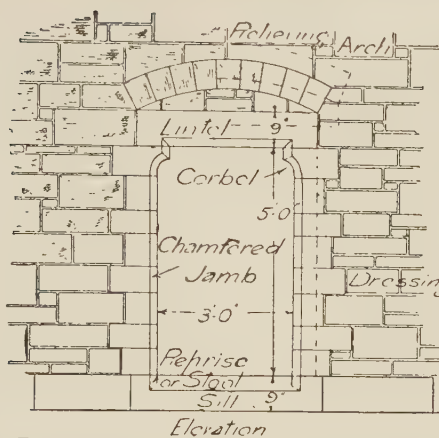 Relieving Arch
Lintel 9"
Corbel
5'·0"
Chamfered
Jamb
Dressing
3'·0"
Reprise
or Stool
Sill 9"
Elevation